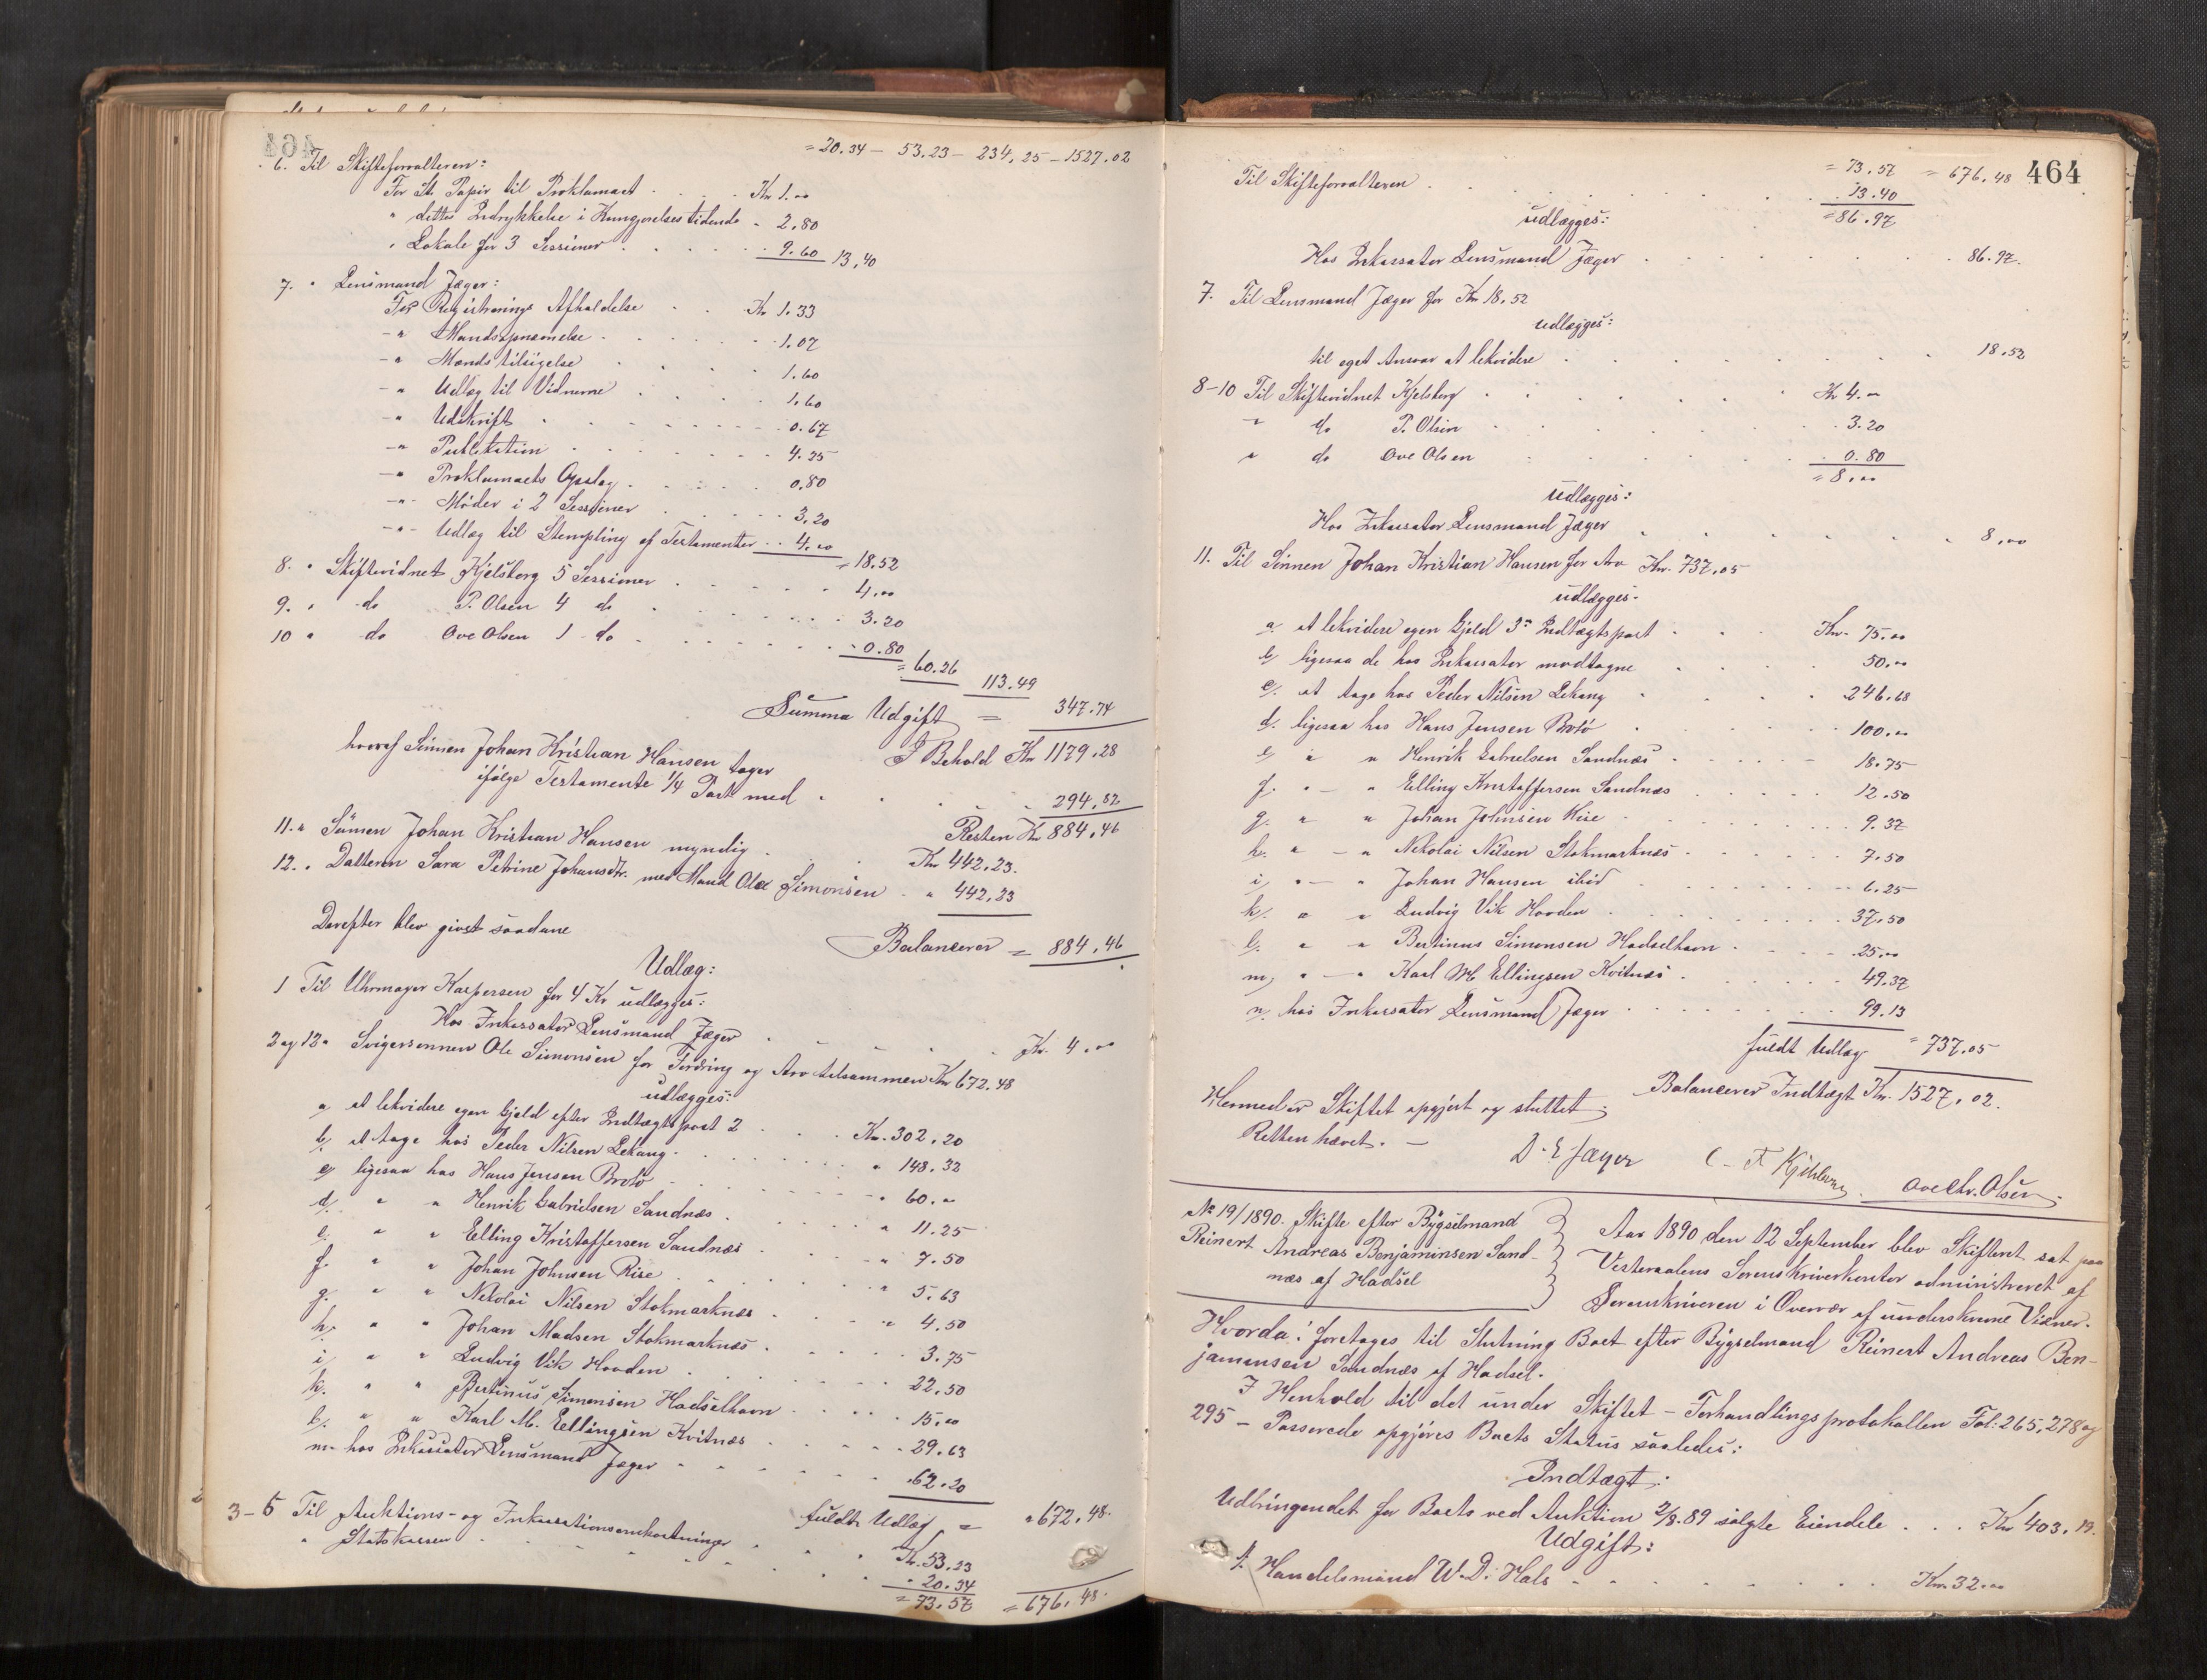 = 20.34 – 53.23 – 234,25 – 1527.02
6. Til Skifteforvalteren:
For St. Papir til Proklamaet . . . Kr 1.00
" dettes Indrykkelse i Kungjørelsestidende " 2,80
" Lokale for 3 Sessioner . . . 9.60 13,40
7. " Lensmand Jæger:
For Registrerings Afholdelse . . Kr 1.33
–"– Mandsopnævnelse . . . 1.07
–"– Mænds tilsigelse . . . 1.60
–"– Udlæg til Vidnerne . . . 1.60
–"– Udskrift . . . 0.67
–"– Publikation . . . 4.25
–"– Proklamaets Opslag . . . 0,80
–"– Møder i 2 Sessioner . . . 3,20
–"– Udlæg til Stempling af Testamenter . . 4.00 = 18.52
8. " Skiftevidnet Kjelsberg 5 Sessioner . . . 4.00
9. " do P. Olsen 4 do . . . 3.20
10 " do Ove Olsen 1 do . . . 0.80
= 60.26 113.49
Summa Udgift = 347.74
I Behold Kr 1179.28
hvoraf Sønnen Johan Kristian Hansen tager
ifølge Testamente 1/4 Part med . . . 294,82
Resten Kr 884,46
11. " Sønnen Johan Kristian Hansen myndig . . Kr 442.23.
12. " Datteren Sara Petrine Johansdtr. med Mand Ole Simonsen . " 442,23
Balancerer = 884,46
Derefter blev givet saadane
Udlæg:
1 Til Uhrmager Kaspersen for 4 Kr udlægges:
Hos Inkassator Lensmand Jæger . . . Kr. 4.00
2 og 12 " Svigersønnen Ole Simonsen for Fordring og Arv tilsammen Kr 672.48
udlægges:
a, at lekvidere egen Gjeld efter Indtægtspost 2 . . Kr. 302,20
b, at tage hos Peder Nilsen Lekang . . . " 148.32
c, ligesaa hos Hans Jensen Brotø . . . " 60."
d, " " Henrik Gabrielsen Sandnæs . . . " 11.25
e. " " Elling Kristoffersen Sandnæs . . . " 7.50
f. " " Johan Johnsen Rise . . . " 5.63
g. " " Nikolai Nilsen Stokmarknæs . . . " 4.50
h, " " Johan Madsen Stokmarknæs . . . 3.75
i, " " Ludvig Vik Hovden . . . 22,50
k. " " Bertinus Simonsen Hadselhavn . . . 15,00
l. " " Karl M. Ellingsen Kvitnæs . . . 29.63
m. hos Inkassator Lensmand Jæger . . . 62.20
fuldt Udlæg = " 672,48.
3–5 Til Auktions- og Inkassationsomkostninger . . . Kr. 53.23
" Statskassen . . . 20.34
= 73.57 = 676,48.
464
= 73.57 = 676.48
Til Skifteforvalteren . . . 13.40
= 86.97
udlægges:
Hos Inkassator Lensmand Jæger . . . 86.97.
7. Til Lensmand Jæger for Kr 18.52
udlægges:
til eget Ansvar at lekvidere . . . 18.52
8–10 Til Skiftevidnet Kjelsberg . . . Kr 4.00
" do P. Olsen . . . 3.20
" do Ove Olsen . . . 0.80
= 8,00
udlægges:
Hos Inkassator Lensmand Jæger . . . 8,00
11. Til Sønnen Johan Kristian Hansen for Arv Kr. 737.05
udlægges.
a. at lekvidere egen Gjeld 3die Indtægtspost . . . Kr. 75.00
b, ligesaa de hos Inkassator modtagne . . . 50.00
c. at tage hos Peder Nilsen Lekang . . . 246.68
d. ligesaa hos Hans Jensen Brotø . . . 100.00
e, " " Henrik Gabrielsen Sandnæs . . . 18.75
f. " – " Elling Kristoffersen Sandnæs . . . 12.50
g. " " Johan Johnsen Rise . . . 9.37
h. " – " Nikolai Nilsen Stokmarknæs . . . 7.50
i, " – " Johan Hansen ibid . . . 6.25
k. " " Ludvig Vik Hovden . . . 37.50
l. " " Bertinus Simonsen Hadselhavn . . . 25.00
m, " – " Karl M. Ellingsen Kvitnæs . . . 49.37
n. hos Inkassator Lensmand Jæger . . . 99.13
fuldt Udlæg = 737.05
Balancerer Indtægt Kr. 1527,02.
Hermed er Skiftet opgjort og sluttet.
Retten hævet. –
D. E Jæger C. F Kjelsberg Ove Chr. Olsen.
No 19/1890. Skifte efter Bygselmand
Reinert Andreas Benjaminsen Sand-
næs af Hadsel
Aar 1890 den 12 September blev Skifteret sat paa
Vesteraalens Sorenskriverkontor administreret af
Sorenskriveren i Overvær af underskrevne Vidner.
Hvorda: foretages til Slutning Boet efter Bygselmand Reinert Andreas Ben-
jaminsen Sandnæs af Hadsel.
I Henhold til det under Skiftet – Forhandlingsprotokollen Fol: 265,278 og
295 – Passerede opgjøres Boets Status saaledes:
Indtægt:
Udbringendet for Boets ved Auktion 2/8.89 solgte Eiendele . . . Kr 403.19.
Udgift:
1. Handelsmand W. D. Hals . . . Kr. 32.00